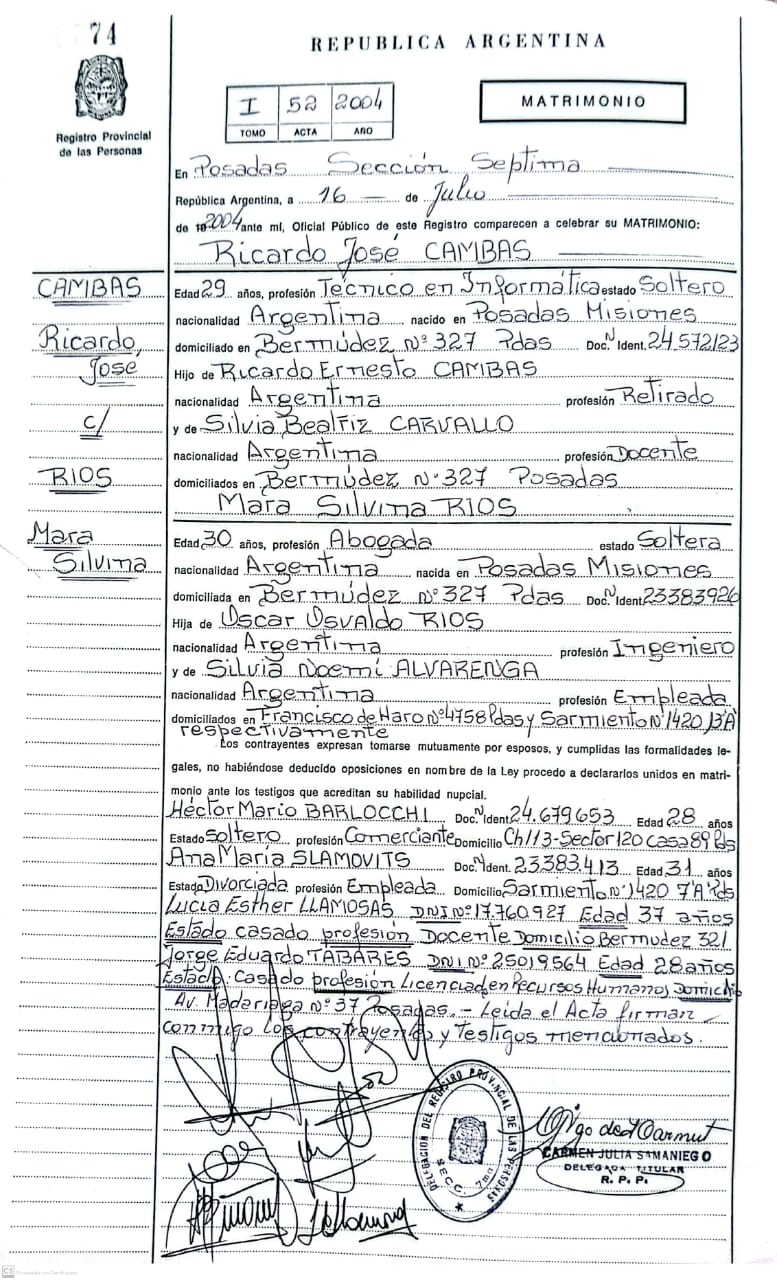 74
REPUBLICA ARGENTINA
I 52 2004
TOMO ACTA AÑO
MATRIMONIO
Registro Provincial
de las Personas
En Posadas Sección Septima
República Argentina, a 16 — de Julio
de 2004 ante mí, Oficial Público de este Registro comparecen a celebrar su MATRIMONIO:
Ricardo José CAMBAS
CAMBAS
Ricardo,
José
c/
RIOS
Mara
Silvina
Edad 29 años, profesión Técnico en Informática estado Soltero
nacionalidad Argentina nacido en Posadas Misiones
domiciliado en Bermúdez Nº 327 Pdas Doc. Nº Ident. 24572123
Hijo de Ricardo Ernesto CAMBAS
nacionalidad Argentina profesión Retirado
y de Silvia Beatriz CARVALLO
nacionalidad Argentina profesión Docente
domiciliados en Bermúdez Nº 327 Posadas
Mara Silvina RIOS
Edad 30 años, profesión Abogada estado Soltera
nacionalidad Argentina nacida en Posadas Misiones
domiciliada en Bermúdez Nº 327 Pdas Doc. Nº Ident 23383926
Hija de Oscar Osvaldo RIOS
nacionalidad Argentina profesión Ingeniero
y de Silvia Noemí ALVARENGA
nacionalidad Argentina profesión Empleada
domiciliados en Francisco de Haro Nº 4758 Pdas y Sarmiento Nº 1420
respectivamente
Los contrayentes expresan tomarse mutuamente por esposos, y cumplidas las formalidades le-
gales, no habiéndose deducido oposiciones en nombre de la Ley procedo a declararlos unidos en matri-
monio ante los testigos que acreditan su habilidad nupcial.
Héctor Mario BARLOCCHI Doc. Nº Ident 24.679653 Edad 28 años
Estado soltero profesión Comerciante Domicilio Ch 113-Sector 120 casa 89 Pds
Ana María SLAMOVITS Doc. Nº Ident. 23383413 Edad 31 años
Estado Divorciada profesión Empleada Domicilio Sarmiento Nº 1420 7ºA Pds
Lucia Esther LLAMOSAS DNI Nº 17.760.927 Edad 37 años
Estado casado profesión Docente Domicilio Bermudez 321
Jorge Eduardo TABARES DNI Nº 25019564 Edad 28 años
Estado: Casado profesión Licenciad en Recursos Humanos Domicilio
Av. Madariaga Nº 37 Posadas. - Leída el Acta firman
conmigo los contrayentes y testigos mencionados.
DELEGACION DEL REGISTRO PROVINCIAL DE LAS PERSONAS
SECC. 7ma
CARMEN JULIA SAMANIEGO
DELEGADA TITULAR
R. P. P.
CS